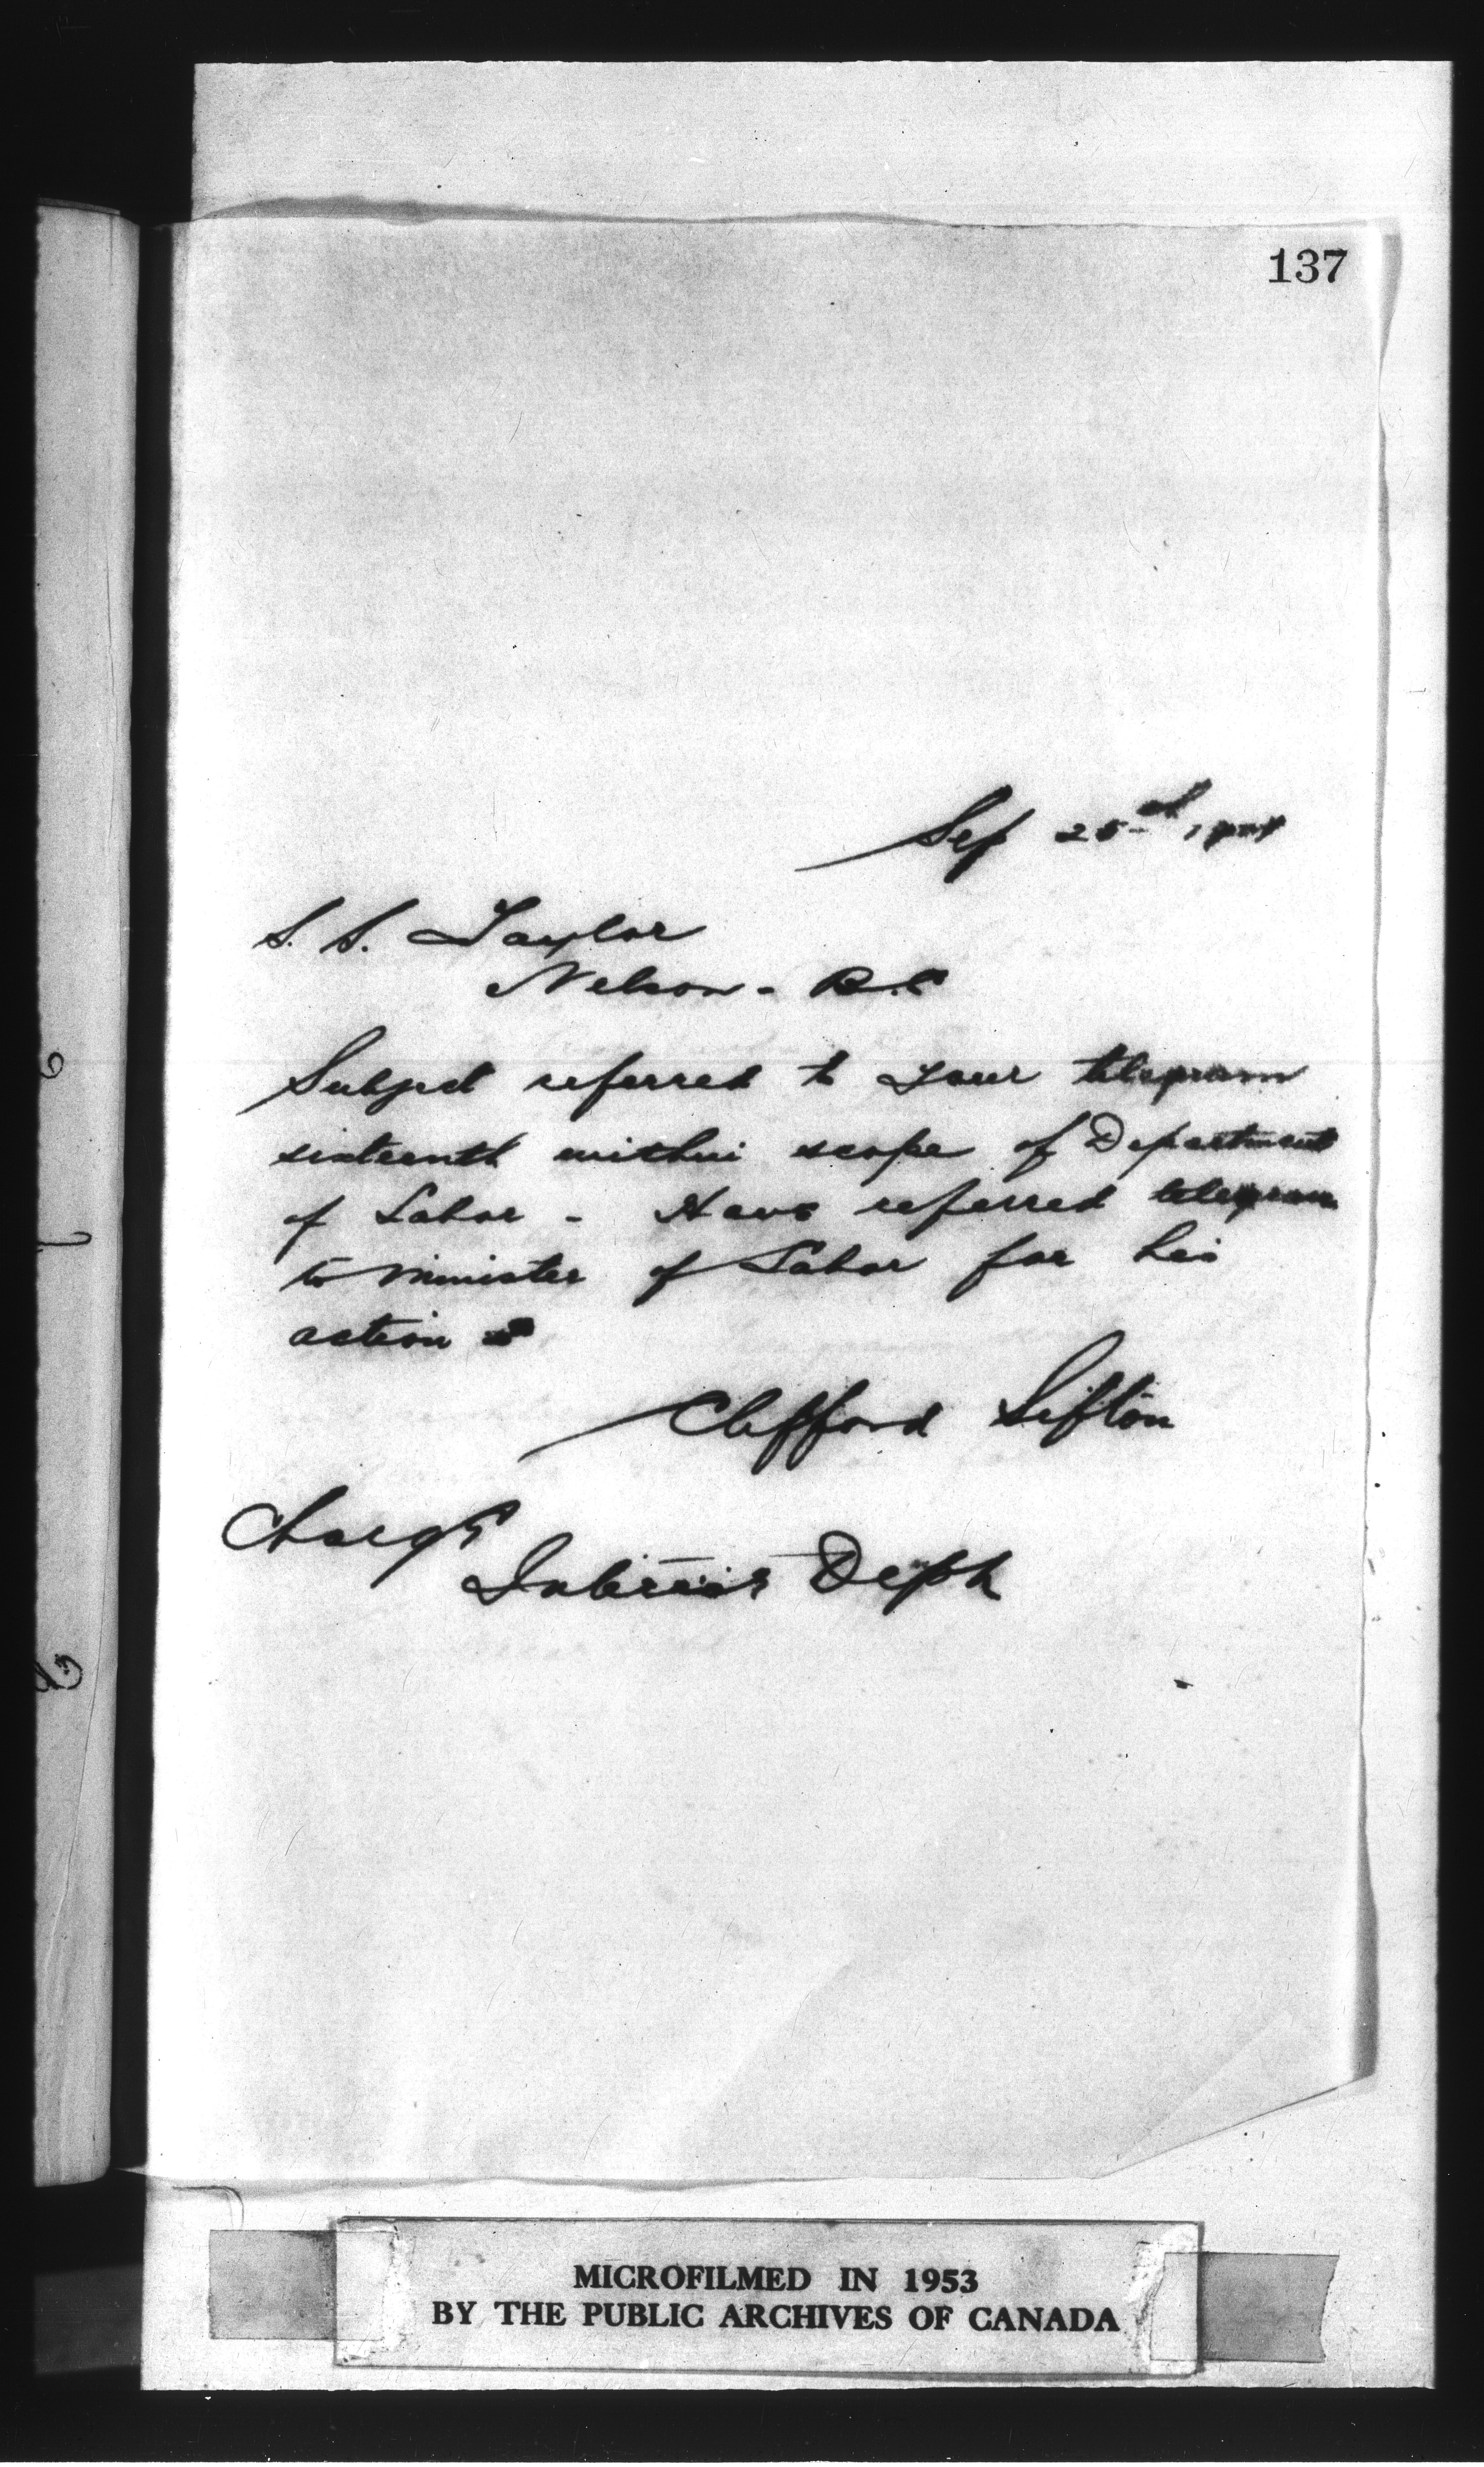 137
Sep 25th
S. S. Taylor
Nelson - B.C
Subject referred to your telegram
sixteenth within scope of Department
of Labor - Have referred telegram
to Minister of Labor for his
action
Clifford Sifton
Charge
Interior Dept
MICROFILMED IN 1953
BY THE PUBLIC ARCHIVES OF CANADA